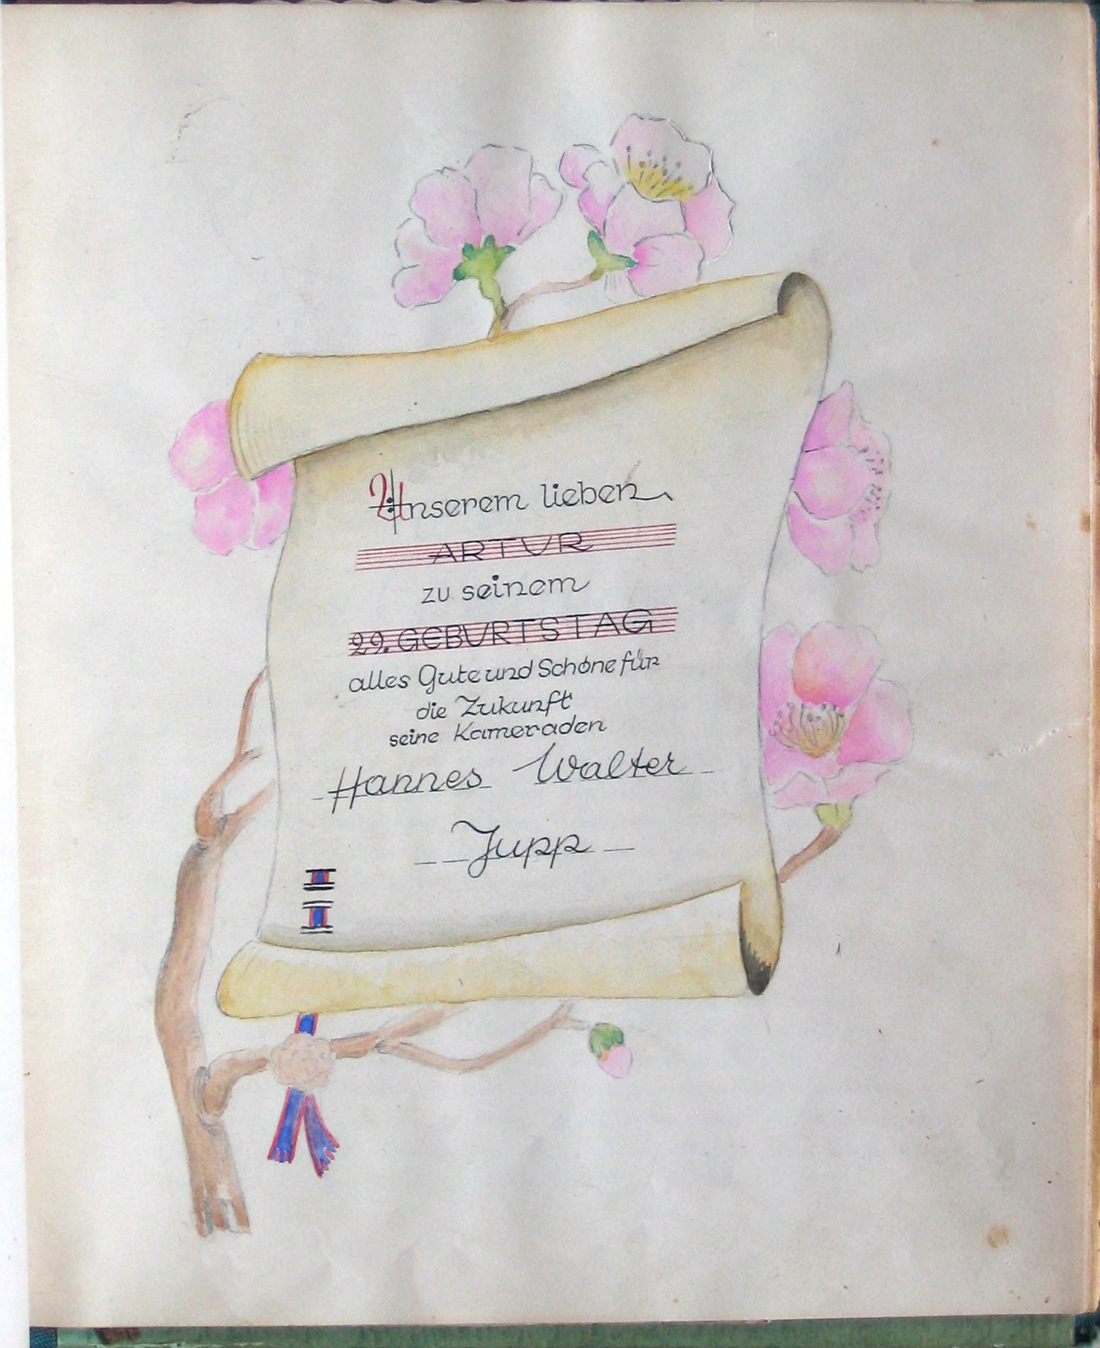 Unserem lieben
ARTUR
zu seinem
29. GEBURTSTAG
alles Gute und Schöne für
die Zukunft
seine Kameraden
Hannes Walter
Jupp